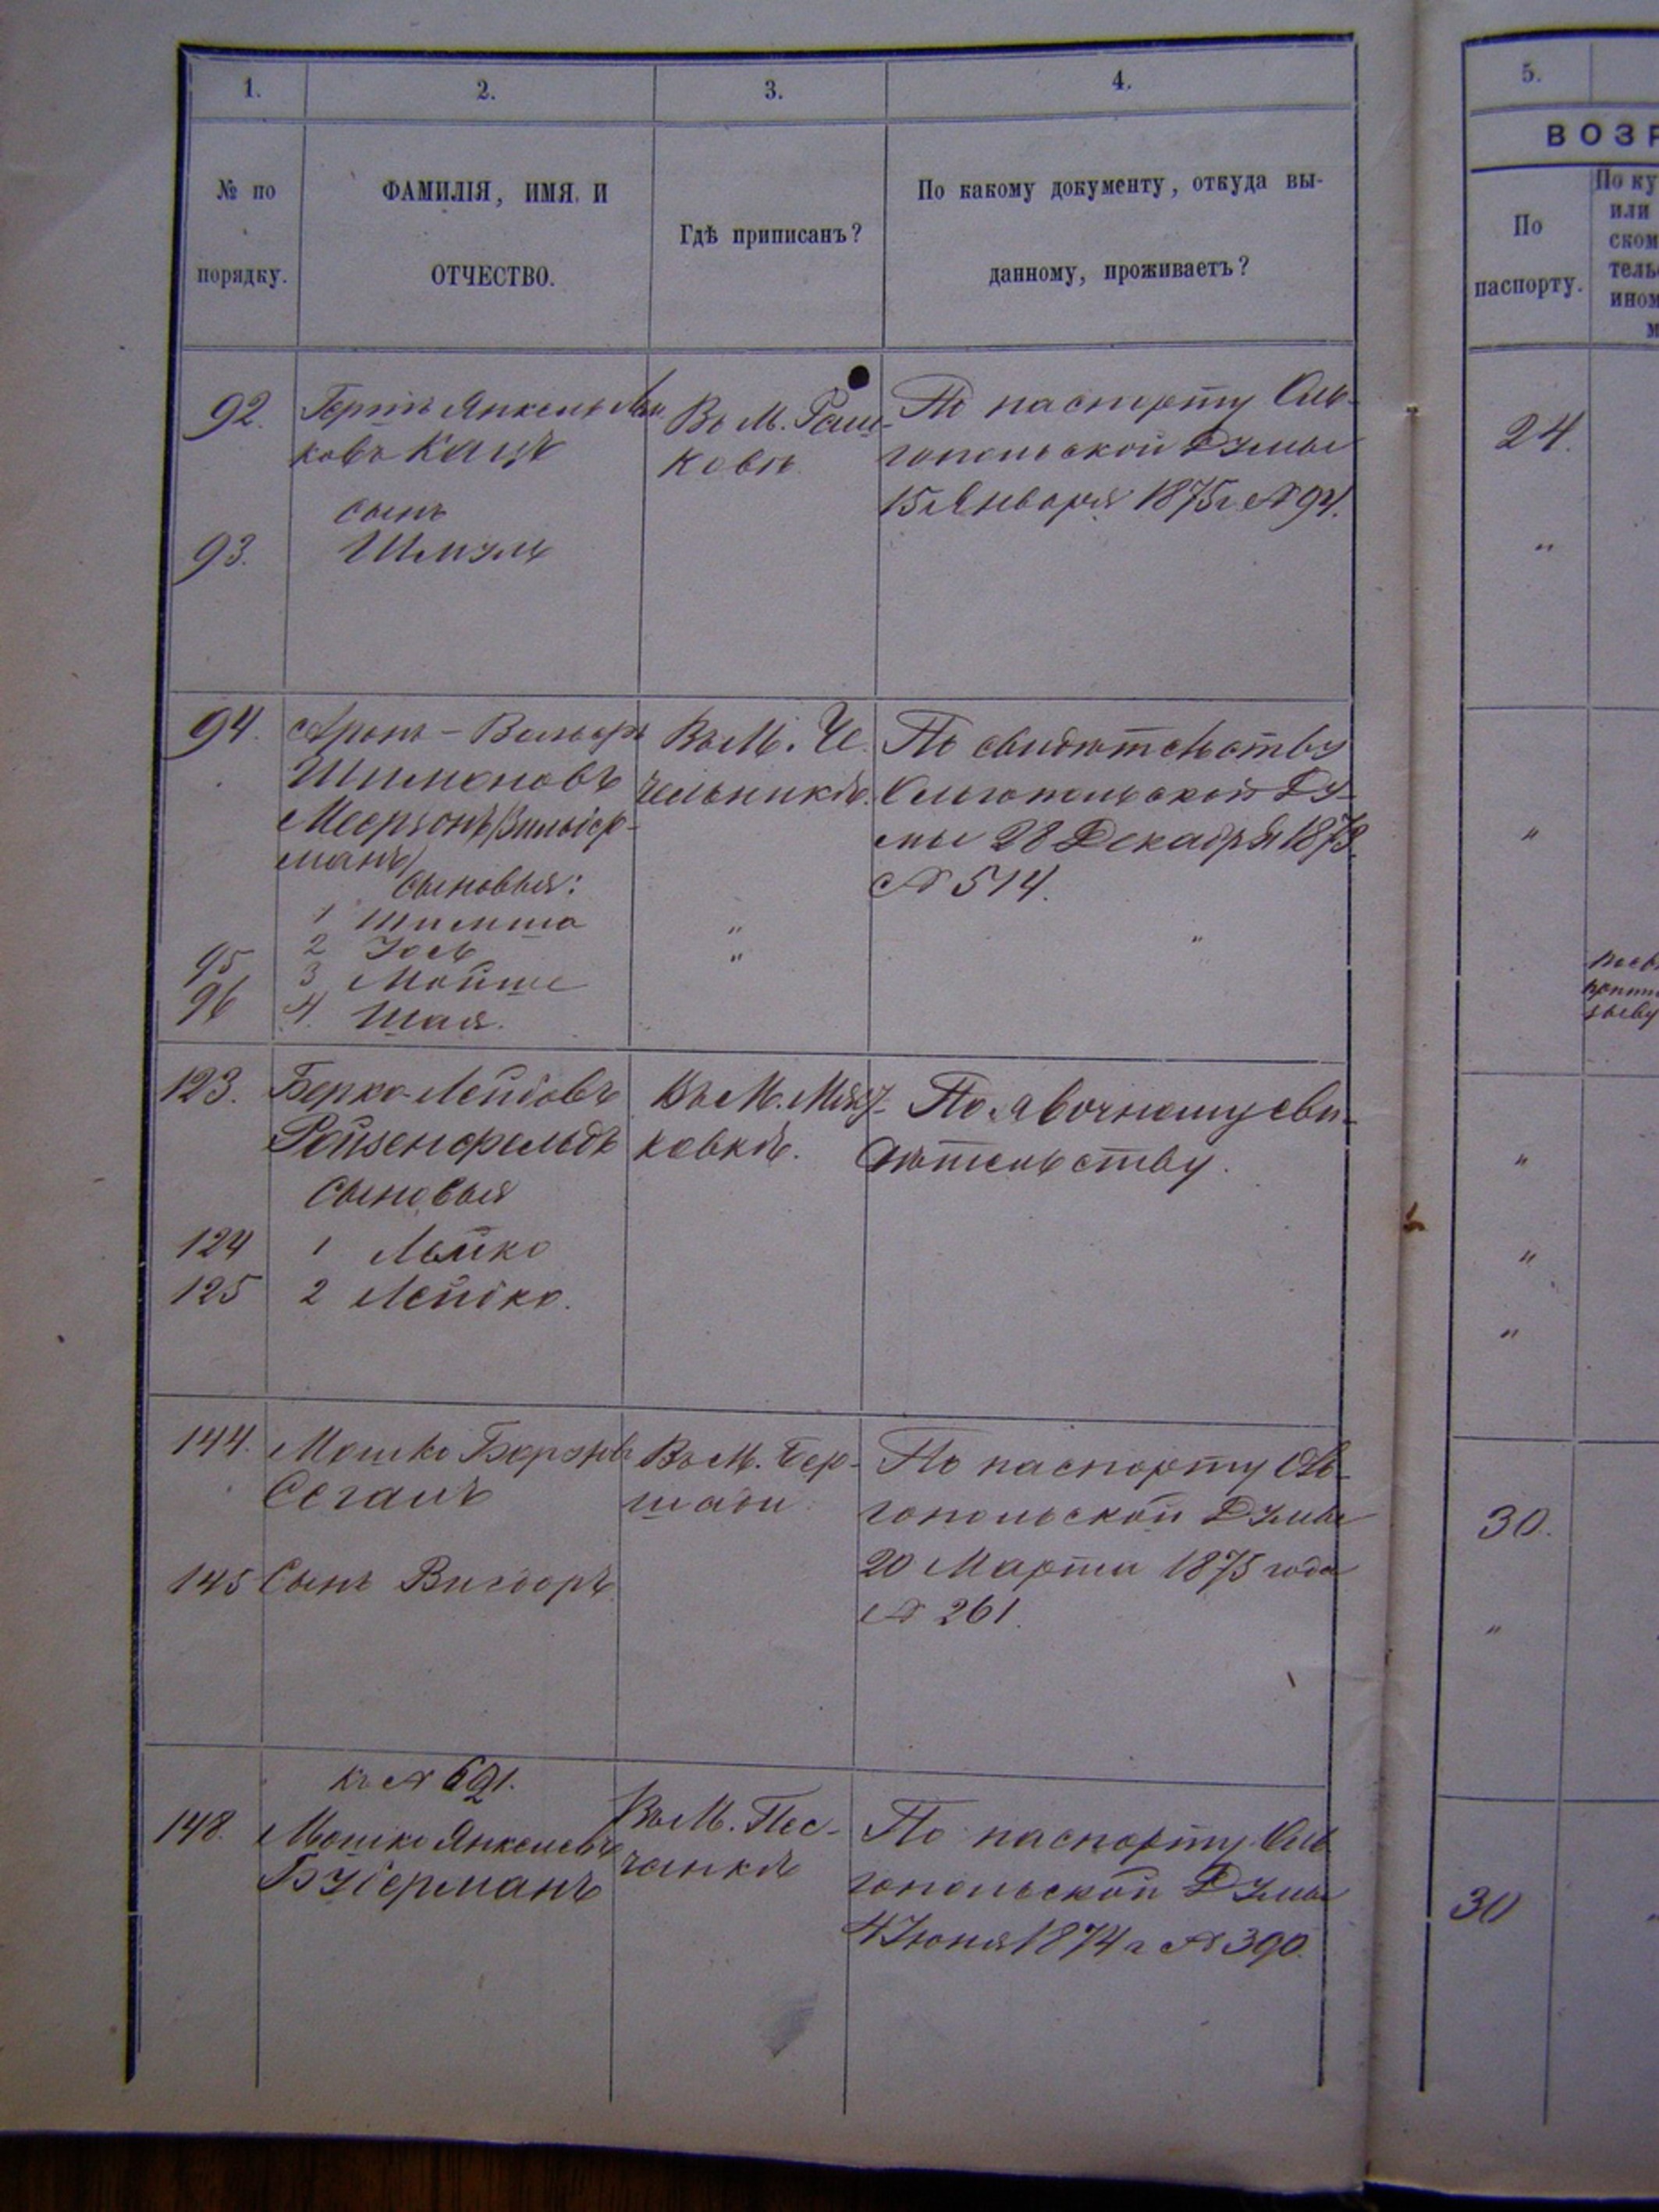 1.
2.
3.
4.
№ по
порядку.
ФАМИЛІЯ, ИМЯ И
ОТЧЕСТВО.
Гдѣ приписанъ?
По какому документу, откуда вы-
данному, проживаетъ?
92.
Янкель
ковъ Кацъ
Въ М. Раш-
ковѣ
По паспорту Оль-
гопольской Думы
15 Января 1875 г № 94.
сынъ
93.
Шмуль
94.
Аронъ-Вольфъ
Шимоновъ
Меерзонъ
манъ)
Сыновья:
1 Шимша
2 Іось
95
3 Мойше
96
4. Шая.
Въ М. Че-
чельникѣ.
"
"
По свидѣтельству
Ольгопольской Ду-
мы 28 Декабря 1873.
№ 514.
"
123.
Берко Лейбовъ
Райзенфельдъ
Сыновья
124
1 Лейко
125
2 Лейбко.
Въ М.
ковкѣ.
По явочному сви-
дѣтельству.
144.
Мошко Берковъ
Сегалъ
145
Сынъ Вигдоръ
Въ М. Бер-
шади
По паспорту Оль-
гопольской Думы
20 Марта 1875 года
№ 261.
къ № 691.
148.
Мошко Янкелевъ
Буберманъ
Въ М. Пес-
чанкѣ
По паспорту Оль-
гопольской Думы
4 Іюня 1874 г № 390.
5.
ВОЗР
По
паспорту.
По ку
или
ском
тель
ином
м
24.
"
"
"
"
"
30.
"
30